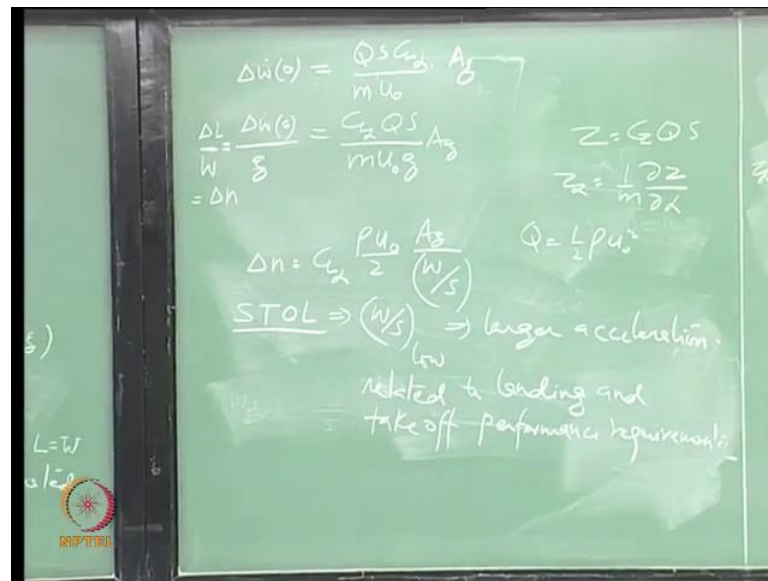 Δẇ(0) = QSC_Lα. Ag / mu₀
ΔL/W = Δẇ(0)/g = C_Lα QS / mu₀g Ag
= Δn
Z = C_Z QS
Z_α = 1/m ∂Z/∂α
Δn = C_Lα ρu₀/2 Ag/(W/S)
Q = 1/2 ρu₀²
STOL ⇒ (W/S)low ⇒ larger acceleration.
related to landing and
take off performance requirements.
L=W
NPTEL